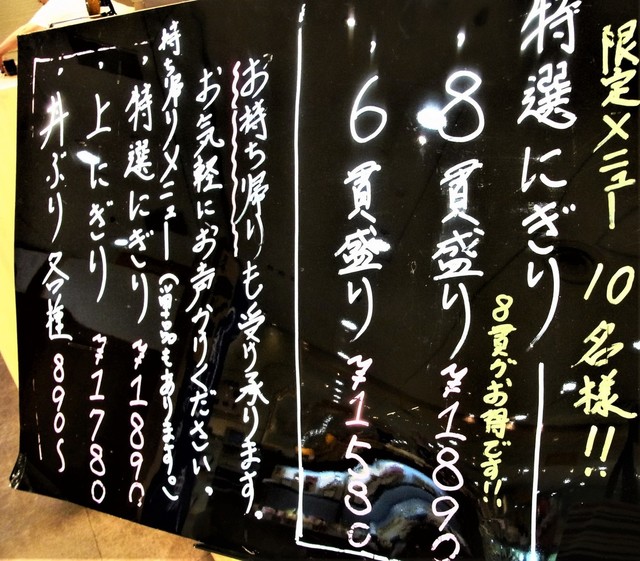 限定メニュー 10名様!!
特選にぎり
8貫がお得です!!
・8貫盛り ¥1890
・6貫盛り ¥1580
お持ち帰りも受け承ります。
お気軽にお声かけください。
持ち帰りメニュー(単品もあります。)
・特選にぎり ¥1890
・上にぎり ¥1780
・丼ぶり各種 890〜